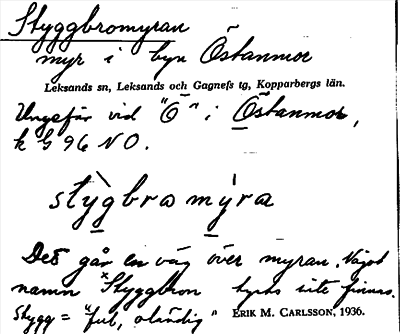 Styggbromyran
myr i byn Östanmor
Leksands sn, Leksands och Gagnefs tg, Kopparbergs län.
Ungefär vid "Ö" i Östanmor,
k G 96 NO.
stỳgbromýra
Det går en väg över myran. Något
namn *Styggbron tycks inte finnas.
stygg = "ful, oländig"
ERIK M. CARLSSON, 1936.